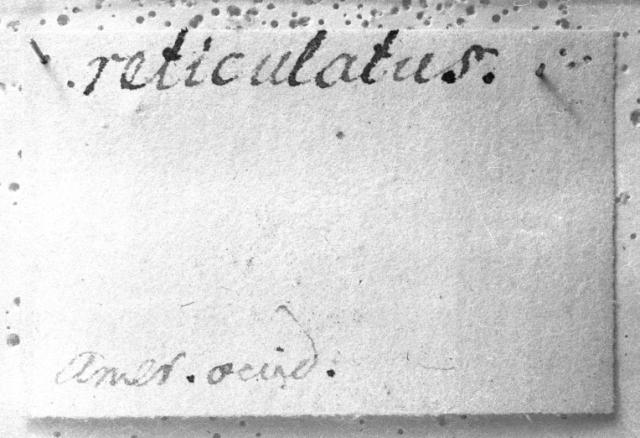 reticulatus.
Amer. ocid.